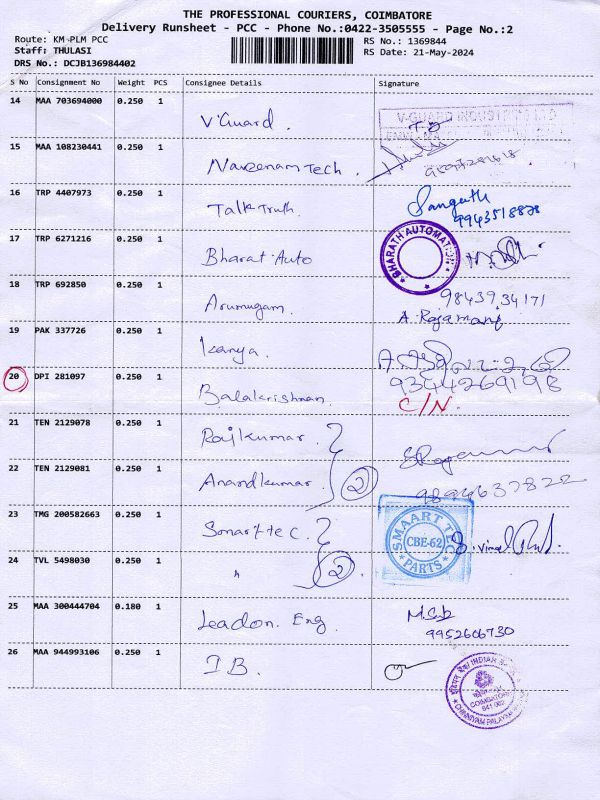 THE PROFESSIONAL COURIERS, COIMBATORE
Delivery Runsheet - PCC - Phone No.:0422-3505555 - Page No.:2
Route: KM-PLM PCC
Staff: THULASI
DRS No.: DCJB136984402
RS No.: 1369844
RS Date: 21-May-2024
S No Consignment No Weight PCS Consignee Details Signature
14 MAA 703694000 0.250 1 V'Guard.
15 MAA 108230441 0.250 1 Naveenam Tech.
16 TRP 4407973 0.250 1 Talk Truth. Sangeeth
9943518828
17 TRP 6271216 0.250 1 Bharat Auto BHARATH AUTOMATION
18 TRP 692850 0.250 1 Arumugam. 9843934171
A. Rajamani
19 PAK 337726 0.250 1 Kanya.
20 DPI 281097 0.250 1 Balakrishnan. 9344269198
C/N.
21 TEN 2129078 0.250 1 Rajkumar.
22 TEN 2129081 0.250 1 Anandkumar. 2 9894637822
23 TMG 200582663 0.250 1 Smart tec. SMAART TEC
CBE-62
PARTS
24 TVL 5498030 0.250 1 " 2
25 MAA 300444704 0.180 1 Leadon. Eng
9952606730
26 MAA 944993106 0.250 1 I B.
COIMBATORE
641 062